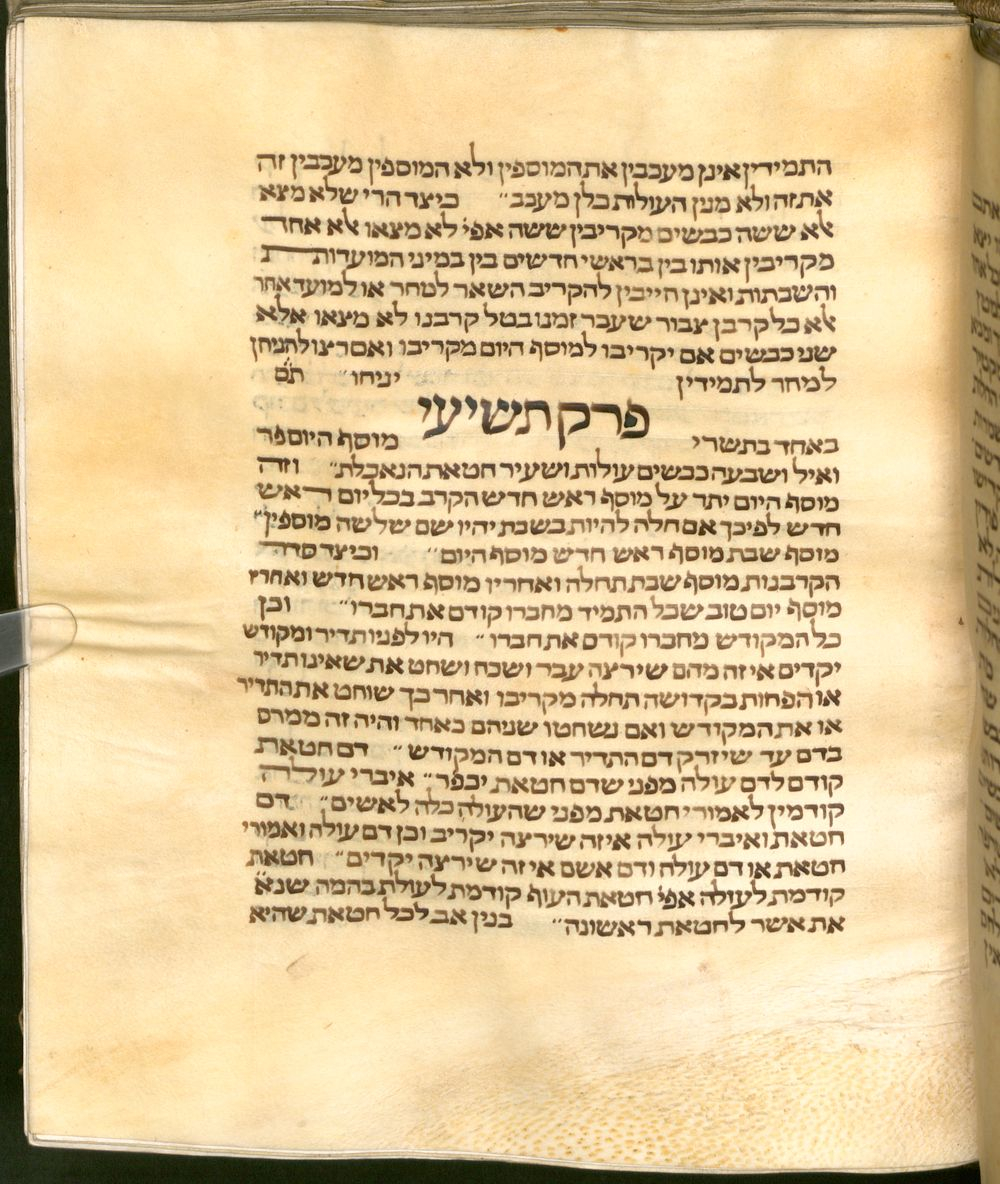 התמידין אינן מעכבין את המוספין ולא המוספין מעכבין זה
את זה ולא מנין העולות כלן מעכב״ כיצד הרי שלא מצא
אלא ששה כבשים מקריבין ששה אפי׳ לא מצאו אלא אחד
מקריבין אותו בין בראשי חדשים בין במיני המועדות
והשבתות ואינן חייבין להקריב השאר למחר או למועד אחר
אלא כל קרבן צבור שעבר זמנו בטל קרבנו לא מצאו אלא
שני כבשים אם יקריבו למוסף היום מקריבו ואם רצו להניחן
למחר לתמידין יניחו״ תם
פרק תשיעי
באחד בתשרי מוסף היום פר
ואיל ושבעה כבשים עולות ושעיר חטאת הנאכלת״ וזה
מוסף היום יתר על מוסף ראש חדש הקרב בכל יום ראש
חדש לפיכך אם חלה להיות בשבת יהיו שם שלשה מוספין״
מוסף שבת מוסף ראש חדש מוסף היום״ וכיצד סדר
הקרבנות מוסף שבת תחלה ואחריו מוסף ראש חדש ואחריו
מוסף יום טוב שכל התמיד מחברו קודם את חברו״ וכן
כל המקודש מחברו קודם את חברו״ היו לפניו תדיר ומקודש
יקדים איזה מהם שירצה עבר ושכח ושחט את שאינו תדיר
או הפחות בקדושה תחלה מקריבו ואחר כך שוחט את התדיר
או את המקודש ואם נשחטו שניהם כאחד והיה זה ממרס
בדם עד שיזרק דם התדיר או דם המקודש״ דם חטאת
קודם לדם עולה מפני שדם חטאת יכפר״ איברי עולה
קודמין לאמורי חטאת מפני שהעולה כלה לאשים״ דם
חטאת ואיברי עולה איזה שירצה יקריב וכן דם עולה ואמורי
חטאת או דם עולה ודם אשם איזה שירצה יקדים״ חטאת
קודמת לעולה אפי׳ חטאת העוף קודמת לעולת בהמה שנא׳
את אשר לחטאת ראשונה״ בנין אב לכל חטאת שהיא